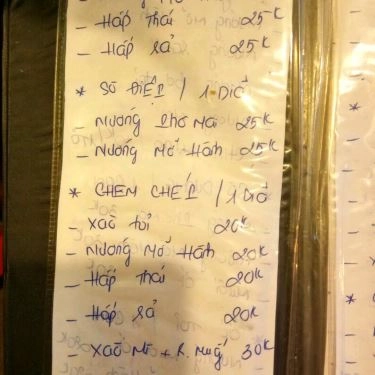 - Hấp thái 25K
- Hấp sả 25K
* SÒ ĐIỆP / 1 DĨA
- Nướng Phô Mai 25K
- Nướng Mỡ Hành 25K
* CHEM CHÉP / 1 DĨA
- Xào tỏi 20K
- Nướng Mỡ Hành 20K
- Hấp thái 20K
- Hấp sả 20K
- Xào Mì + R. Muống 30K